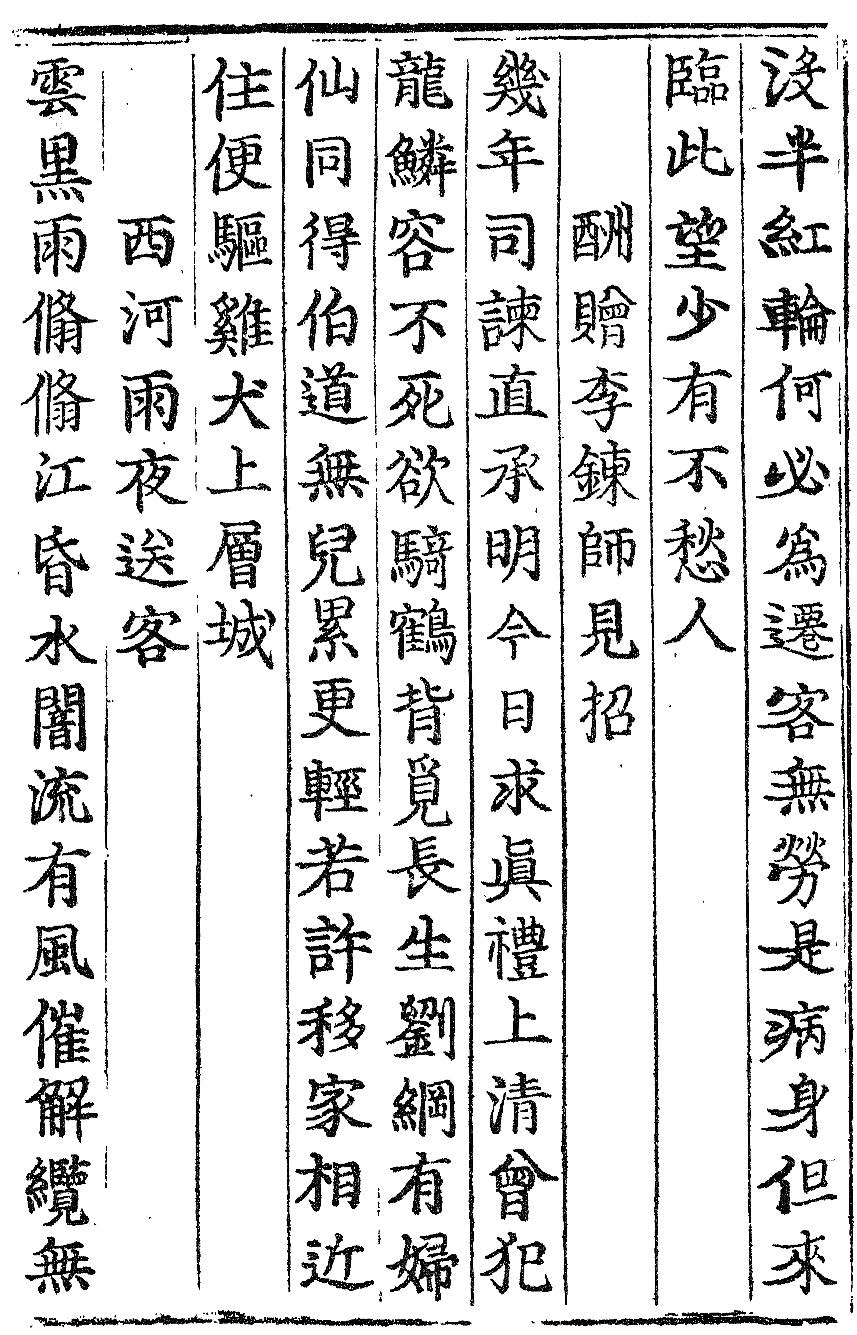 没半紅輪何必為遷客無勞是病身但來
臨此望少有不愁人
酬贈李鍊師見招
幾年司諫直承明今日求眞禮上清曾犯
龍鱗容不死欲騎鶴背覓長生劉綱有婦
仙同得伯道無兒累更輕若許移家相近
住便驅雞犬上層城
西河雨夜送客
雲黒雨翛翛江昏水闇流有風催解纜無